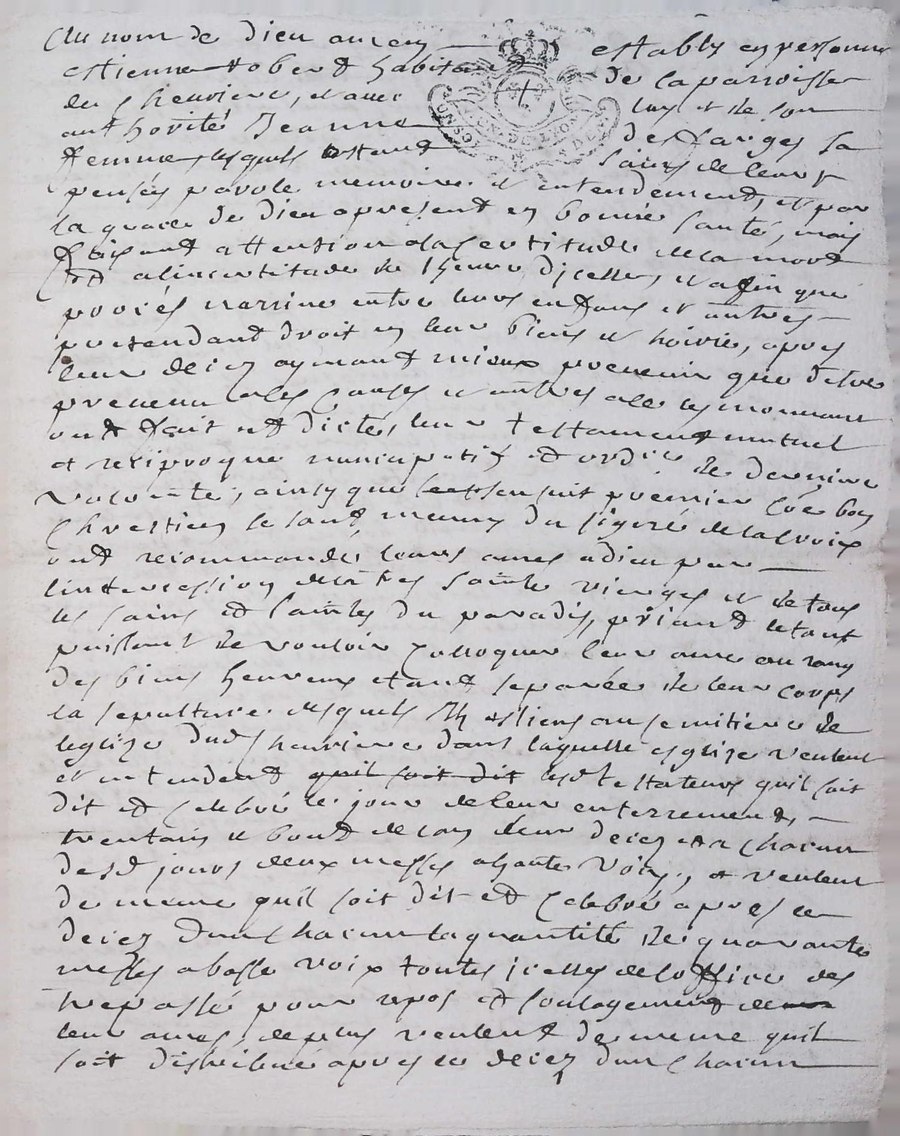 Au nom de Dieu amen establys en personne
estienne habitant de la parroisse
de Chevriere, et avec luy et de son
authorité Jeanne desfarges sa
femme lesquels estant sains de leurs
pensés parole memoire et entendement, et par
la grace de Dieu apresent en bonne santé, mais
faisant attention a la certitude de la mort
et a lincertitude de lheure dicelle, et afin que
procés narrive entre leurs enfans et autres
pretendant droit en leur biens et hoirie, apres
leur decez aymant mieux prevenir que detre
prevenu
ont fait et dicté, leur testament mutuel
et reciproque nuncupatif et ord.re de derniere
volonté, ainsy que sensuit premier co͠e bon
Chrestien se sont munis du signe de la croix
ont recommandé leurs ames a dieu par
lintercession de la tres sainte vierge et de tous
les sains et saintes du paradis, priant le tout
puissant de vouloir colloquer leur ame au rang
des bien heureux etant separée de leur corps
la sepulture desquels ils au semitiere de
leglize dud. Chevriere dans laquelle esglize veulent
et entendent quil soit dit lesd. testateurs quil soit
dit et celebré le jour de leur enterrement,
trentain et bout de lan de leur decez et a chacun
desd. jours deux messes a haute voix, et veulent
de meme quil soit dit et celebré apres le
decez dun chacun la quantité de quarante
messes a basse voix toutes icelles de loffice des
trepassé pour repos et soulagement de
leur ames, de plus veulent de meme quil
soit distribué apres le decez dun chacun